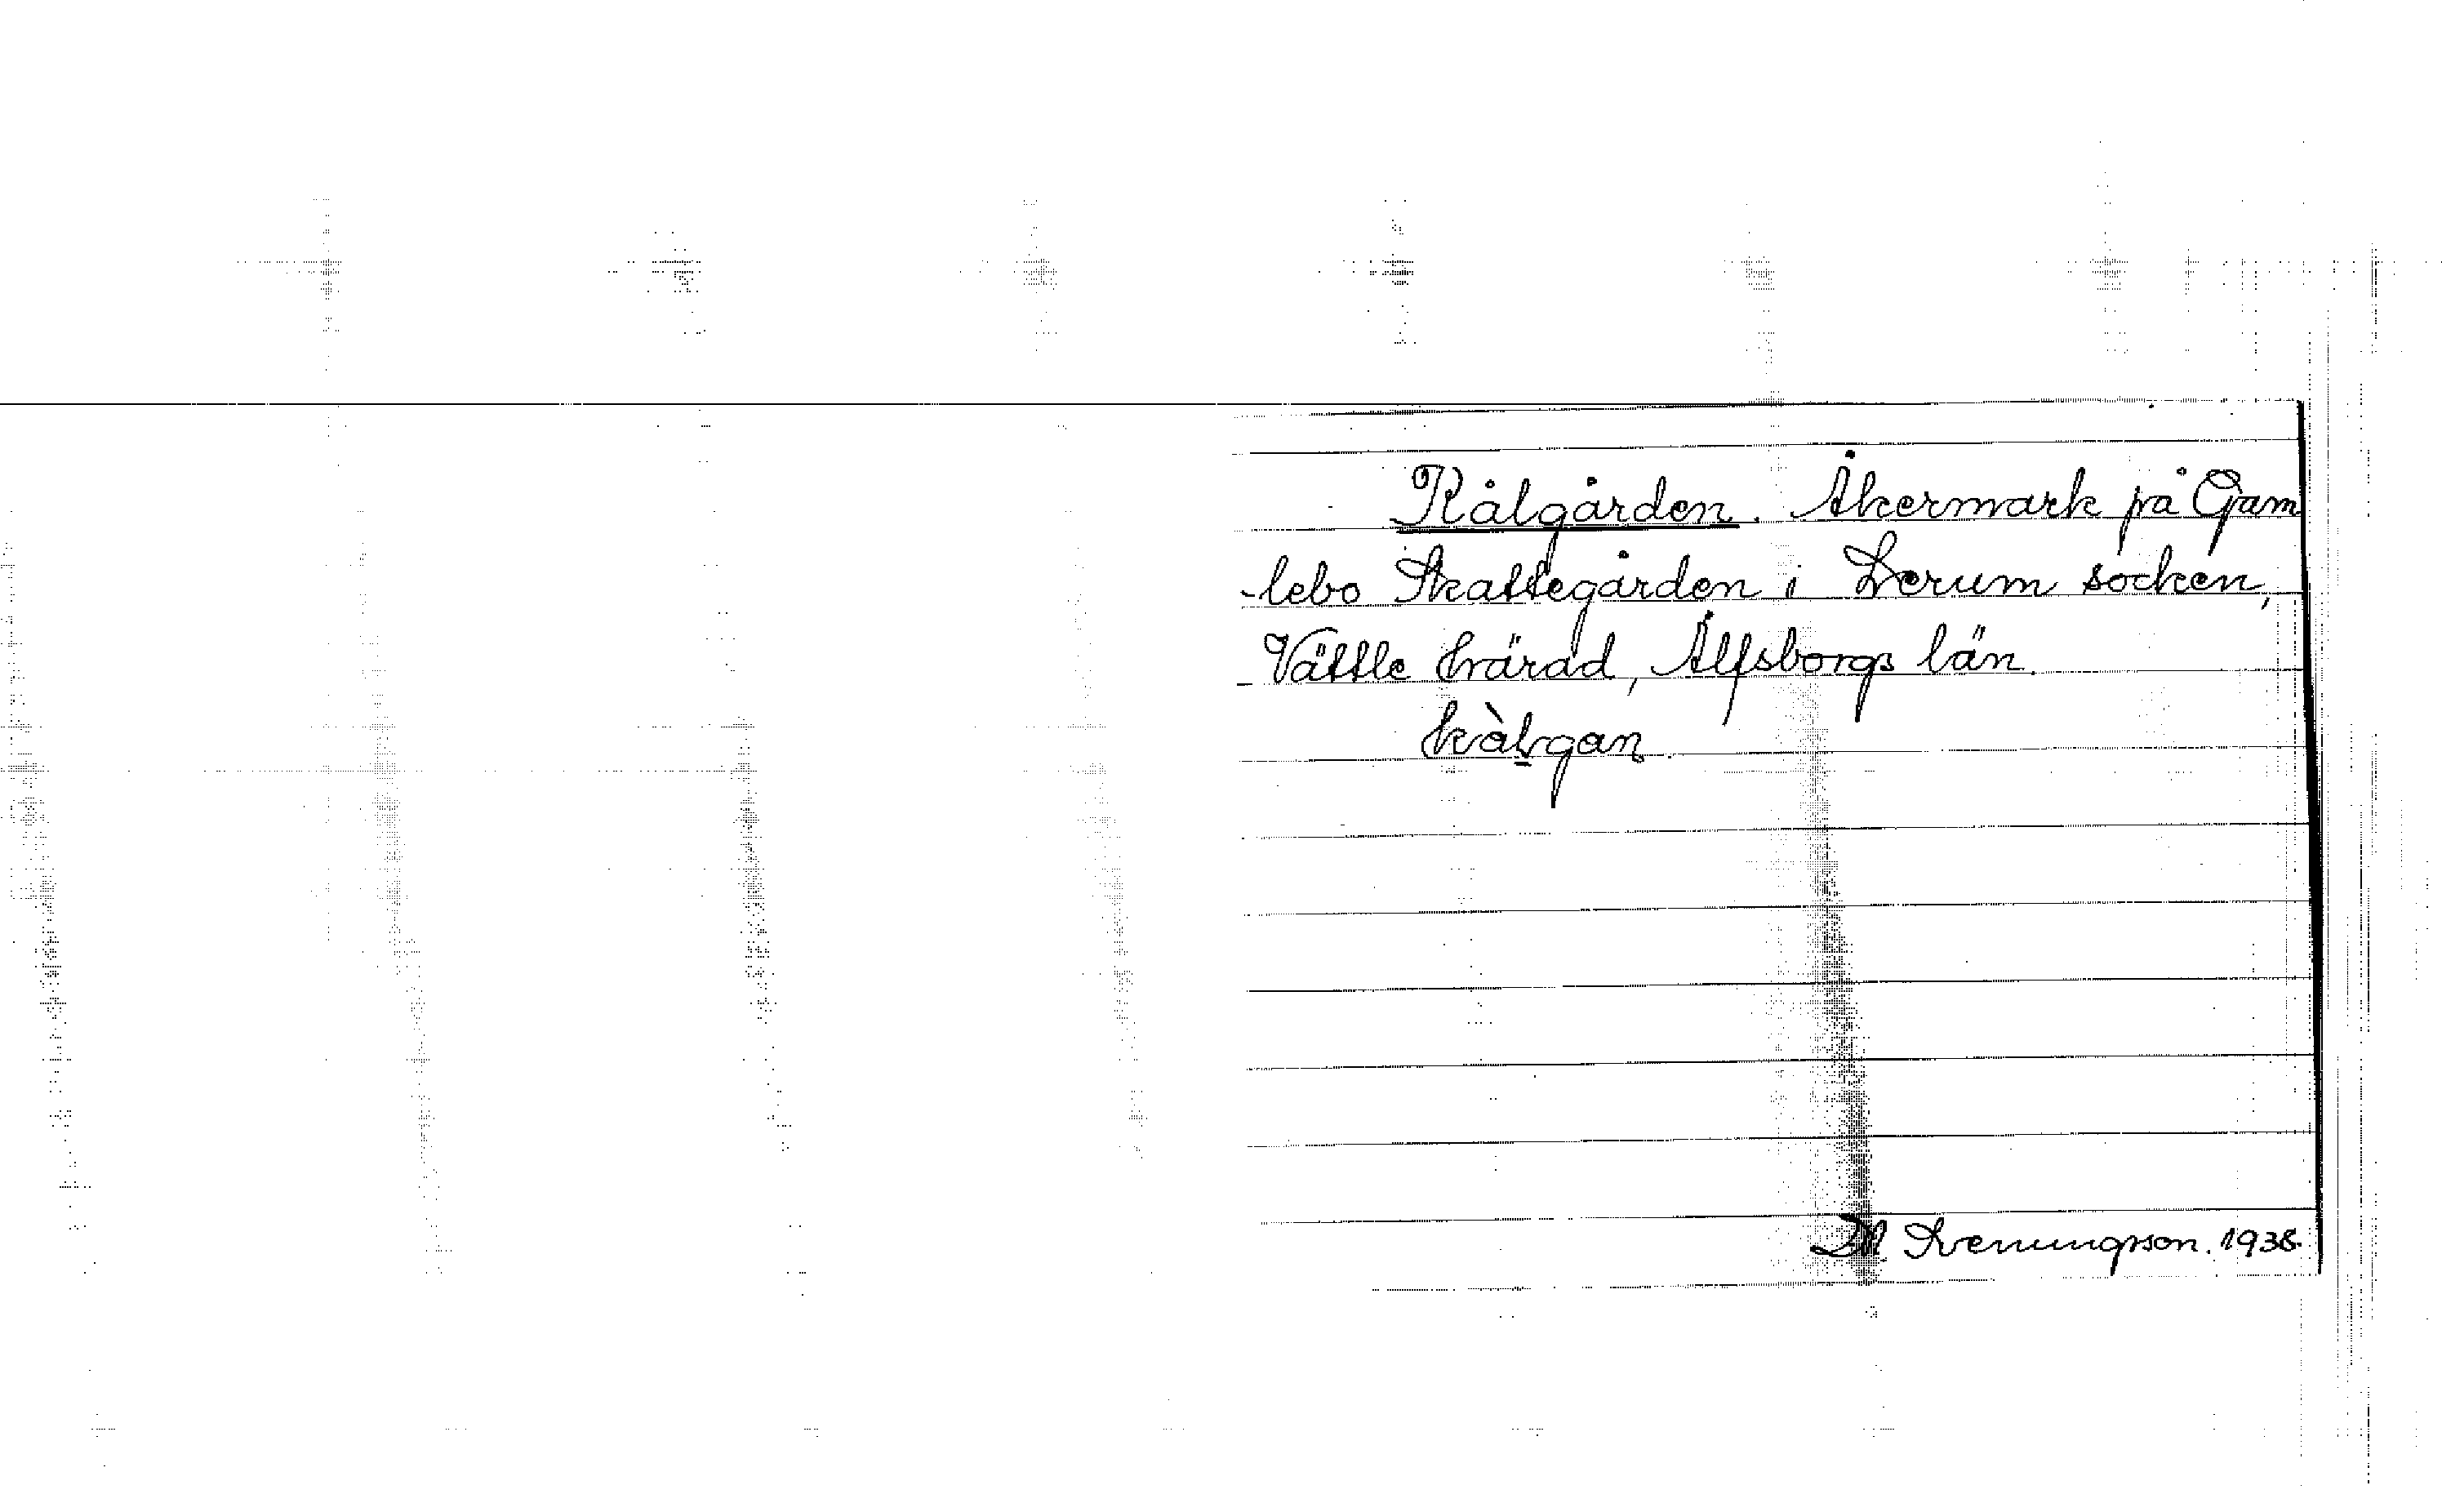 Kålgården. Åkermark på Gam
-lebo Skattegården i Lerum socken,
Vättle härad, Älfsborgs län.
kàl̠gan
Svenungsson. 1938.